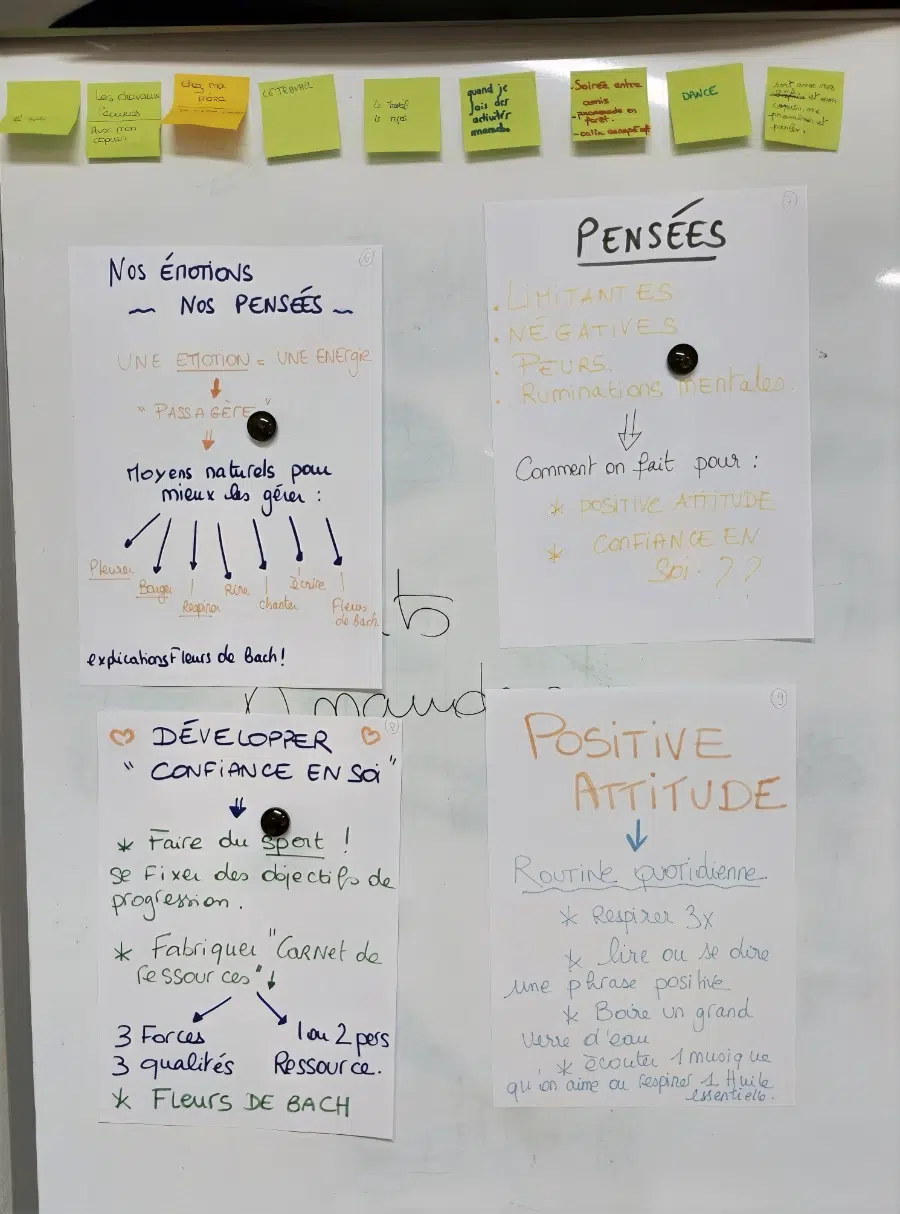 Les chevaux
l'écurie
Avec mon
copain
chez ma
LE TRAVAIL
le travail
quand je
fais des
activités
Soirée entre
amis
- promenade en
forêt.
- calin canapé
DANCE
et mon
copain, me
promener et
parler.
6
NOS ÉMOTIONS
~ NOS PENSÉES ~
UNE EMOTION = UNE ENERGIE
"PASSAGÈRE"
Moyens naturels pour
mieux les gérer :
Pleurer
Bouger
Respirer
Rire
chanter
écrire
Fleurs
de Bach
explications Fleurs de Bach!
7
PENSÉES
. LIMITANTES
. NÉGATIVES
. PEURS.
. Ruminations mentales.
Comment on fait pour :
* POSITIVE ATTITUDE
* CONFIANCE EN
SOI. ??
Amand
8
DÉVELOPPER
"CONFIANCE EN SOI"
* Faire du sport !
se Fixer des objectifs de
progression.
* Fabriquer "CARNET de
ressources"
3 Forces
3 qualités
1 ou 2 pers
Ressource.
* FLEURS DE BACH
9
POSITIVE
ATTITUDE
ROUTINE quotidienne
* Respirer 3x
* lire ou se dire
une phrase positive
* Boire un grand
verre d'eau
* écouter 1 musique
qu'on aime ou respirer 1 Huile
essentielle.